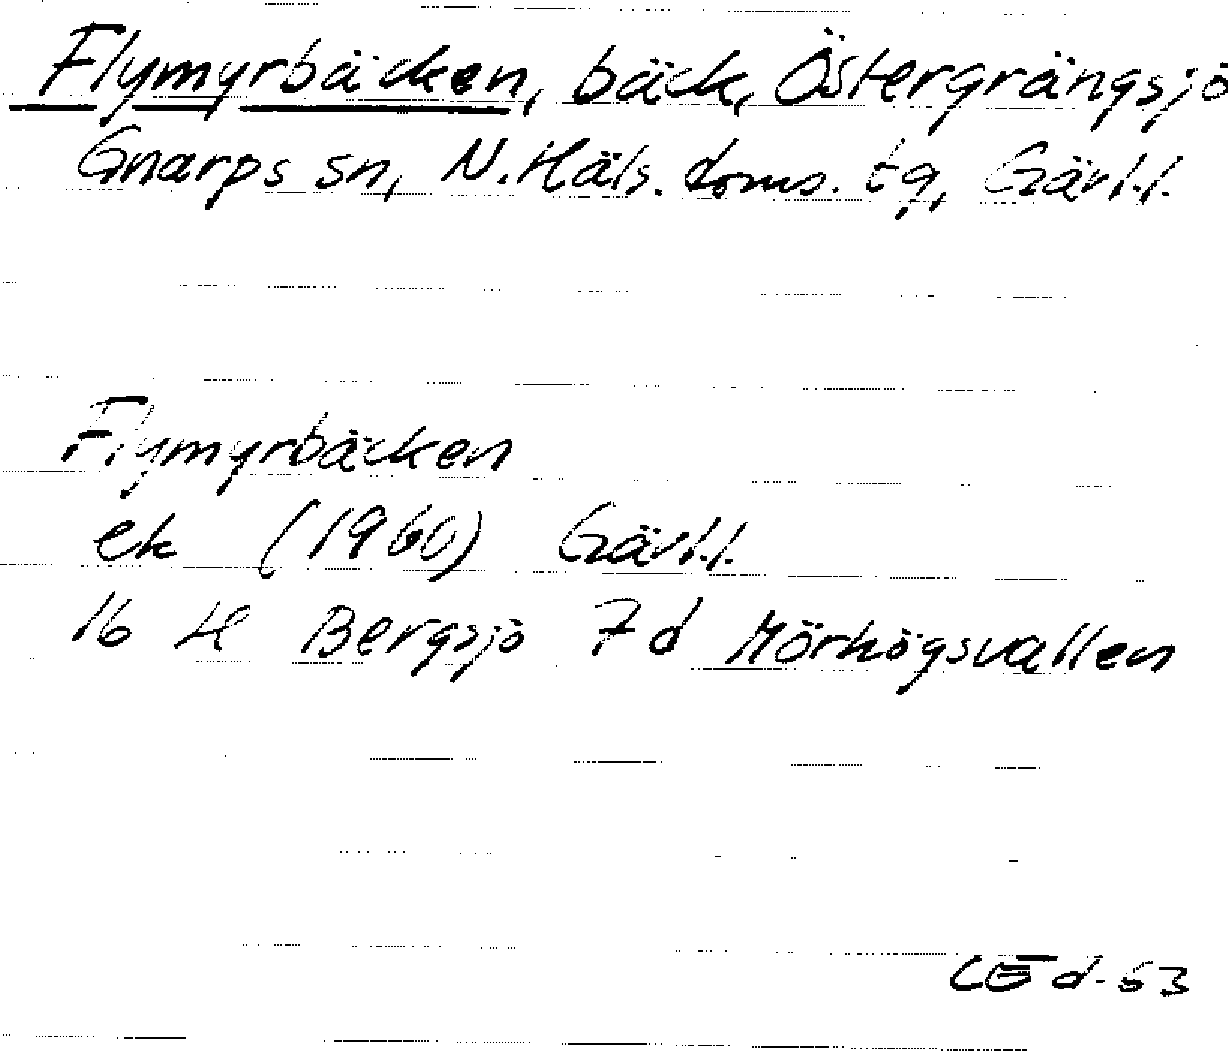 Flymyrbäcken, bäck, Östergrängsjö
Gnarps sn, N. Häls. doms. tg, Gävl.l.
Flymyrbäcken
ek (1960) Gävl.l.
16 H Bergsjö 7d Mörhögsvallen